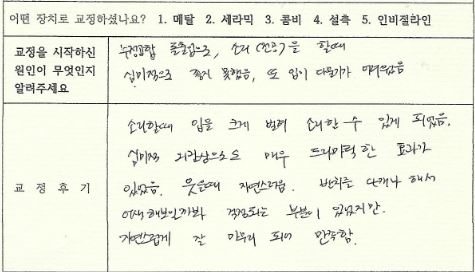 어떤 장치로 교정하셨나요? 1. 메탈 2. 세라믹 3. 콤비 4. 설측 5. 인비절라인
교정을 시작하신
원인이 무엇인지
알려주세요
돌출입으로, 소리(전공)을 할때
심미적으로 좋지 못했음, 또 입이 다물기가 어려웠음
교정후기
소리할때 입을 크게 벌려 소리할 수 있게 되었음.
심미적 외관상으로도 매우 드라마틱한 효과가
있었음. 웃을때 자연스러움. 발치를 4개나 해서
어색해보일까봐 걱정되는 부분이 있었지만.
자연스럽게 잘 마무리 되어 만족함.